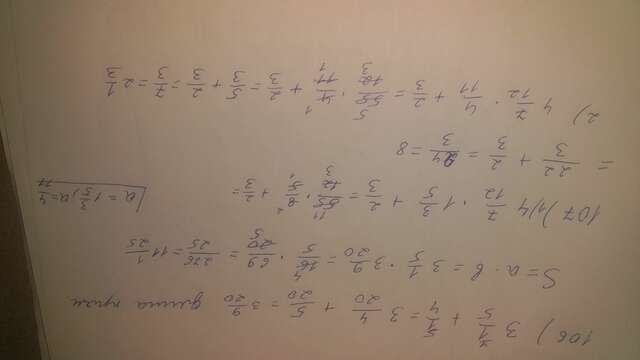 106) 3 1/5 + 1/4 = 3 4/20 + 5/20 = 3 9/20 длина прям
S = a · b = 3 1/5 · 3 9/20 = 16/5 · 69/20 = 276/25 = 11 1/25
107) 1) 4 7/12 · 1 3/5 + 2/3 = 55/12 · 8/5 + 2/3 =
= 22/3 + 2/3 = 24/3 = 8
a = 1 3/5; a = 4/11
2) 4 7/12 · 4/11 + 2/3 = 55/12 · 4/11 + 2/3 = 5/3 + 2/3 = 7/3 = 2 1/3